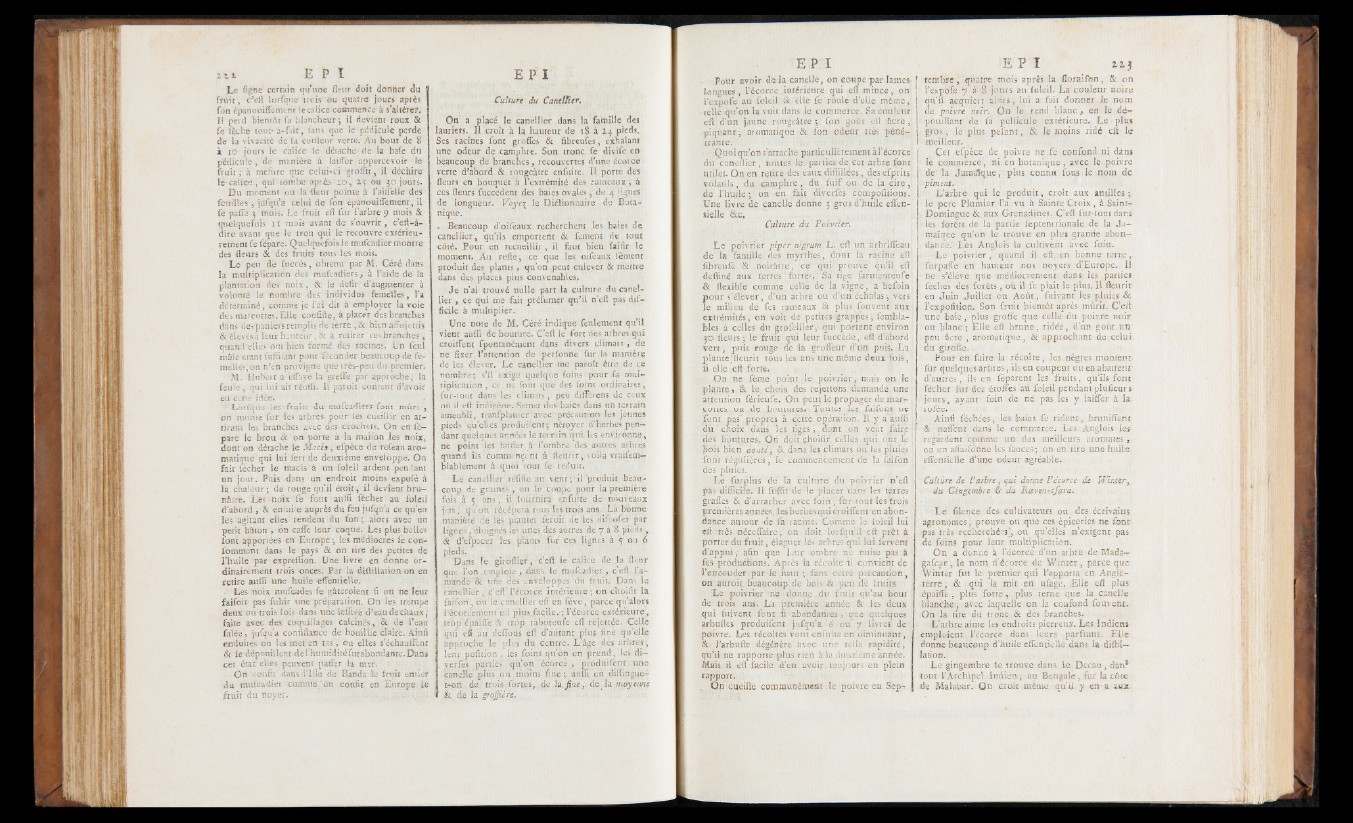 222 E P I
Le signe certain qu'une fleur doit donner du
fruit, c'est lorsque trois ou quatre jours après
son épanouissement le calice commence à s'altérer.
Il perd bientôt sa blancheur; il devient roux &
se sèche tout-à-fait, sans que le pédicule perde
de la vivacité de sa couleur verte. Au bout de 8
à 10 jours le calice se détache de la base du
pédicule, de manière à laisser appercevoir le
fruit; à mesure que celui-ci grossit, il déchire
le calice, qui tombe après 20, 25 ou 30 jours.
Du moment où la fleur pointe à l'aisselle des
feuilles, jusqu'à celui de son épanouissement, il
se passe 3 mois. Le fruit est sur l'arbre 9 mois &
quelquefois 11 mois avant de s'ouvrir, c'est-à-
dire avant que le brou qui le recouvre extérieu-
rement se sépare. Quelquefois le muscadier montre
des fleurs & des fruits tous les mois.
Le peu de succès, obtenu par M. Céré dans
la multiplication des muscadiers, à l'aide de la
plantation des noix, & le desir d'augmenter à
volonté le nombre des individus femelles, l'a
déterminé, comme je l'ai dit à employer la voie
des marcottes. Elle consiste, à placer des branches
dans des paniers remplis de terre, & bien assujettis
& élevés à leur hauteur, & à retirer ces branches,
quand elles ont bien formé des racines. Un seul
mâle étant suffisant pour féconder beaucoup de fe-
melles, on n'en provigne que très-peu du premier.
M. Hubert a essayé la greffe par approche, la
seule, qui lui ait réussi. Il paroît content d'avoir
eu cette idée.
Lorsque les fruits du muscadiers sont mûrs,
on monte sur les arbres pour les cueillir en at-
tirant les branches avec des crochets. On en sé-
pare le brou & on porte à la maison les noix,
dont on détache le Macis, espèce de réseau aro-
matique qui lui sert de deuxième enveloppe. On
fait sécher le macis à un soleil ardent pendant
un jour. Puis dans un endroit moins exposé à
la chaleur; de rouge qu'il étoit, il devient bru-
nâtre. Les noix se font aussi sécher au soleil
d'abord, & ensuite auprès du feu jusqu'à ce qu'en
les agitant elles rendent du son; alors avec un
petit bâton, on casse leur coque. Les plus belles
sont apportées en Europe; les médiocres se con-
somment dans le pays & on tire des petites de
l'huile par expression. Une livre en donne or-
dinairement trois onces. Par la distillation on en
retire aussi une huile essentielle.
Les noix muscades se gâteroient si on ne leur
faisoit pas subir une préparation. On les trempe
deux ou trois fois dans une lessive d'eau de chaux,
faite avec des coquillages calcinés, & de l'eau
salée, jusqu'à consistance de bouillie claire. Ainsi
enduites on les met en tas, où elles s'échauffent
& se dépouillent de l'humidité surabondante. Dans
cet état elles peuvent passer la mer.
On confit dans l'Isle de Banda le fruit entier
du muscadier comme on confit en Europe le
fruit du noyer.
E P I
Culture du Canellier.
On a placé le canellier dans la famille des
lauriers. Il croît à la hauteur de 18 à 24 pieds.
Ses racines sont grosses & fibreuses, exhalant
une odeur de camphre. Son tronc se divise en
beaucoup de branches, recouvertes d'une écorce
verte d'abord & rougeâtre ensuite. Il porte des
fleurs en bouquet à l'extrémité des rameaux, à
ces fleurs succèdent des baies ovales, de 4 lignes
de longueur. Voyez le Dictionnaire de Bota-
nique.
Beaucoup d'oiseaux recherchent les baies de
canellier, qu'ils emportent & sèment de tout
côté. Pour en recueillir, il faut bien saisir le
moment. Au reste, ce que les oiseaux sèment
produit des plants, qu'on peut enlever & mettre
dans des places plus convenables.
Je n'ai trouvé nulle part la culture du canel-
lier, ce qui me fait présumer qu'il n'est pas dif-
ficile à multiplier.
Une note de M. Céré indique seulement qu'il
vient aussi de bouture. C'est le sort des arbres qui
croissent spontanément dans divers climats, de
ne fixer l'attention de personne sur la manière
de les élever. Le canellier me paroît être de ce
nombre; s'il exige quelque soins pour sa mul-
tiplication, ce ne sont que des soins ordinaires,
sur-tout dans les climats, peu différens de ceux
où il est indigène. Semer des baies dans un terrain
ameubli, transplanter avec précaution les jeunes
pieds qu'elles produisent; nétoyer d'herbes pen-
dant quelques années le terrein qui les environne,
ne point les laisser à l'ombre des autres arbres
quand ils commencent à fleurir, voilà vraisem-
blablement à quoi tout se réduit.
Le canellier résiste au vent; il produit beau-
coup de graines, on le coupe pour la première
fois à 5 ans, il fournira ensuite de nouveaux
jets, qu'on récépera tous les trois ans. La bonne
manière de les planter seroit de les disposer par
lignes, éloignés les unes des autres de 7 à 8 pieds,
& d'espacer les plants sur ces lignes à 5 ou 6
pieds.
Dans le giroflier, c'est le calice de la fleur
que l'on emploie, dans le muscadier, c'est l'a-
mande & une des enveloppes du fruit. Dans le
canellier, c'est l'écorce intérieure; on choisit la
saison, où le canellier est en sève, parce qu'alors
l'écorcement est plus facile.; l'écorce extérieure,
trop épaisse & trop raboteuse est rejettée. Celle
qui est au dessous est d'autant plus fine qu'elle
approche le plus du centre. L'âge des arbres,
leur position, les soins qu'on en prend, les di-
verses parties qu'on écorce, produisent une
canelle plus ou moins fine; aussi en distingue-
t-on de trois sortes, de la fine, de la moyenne
& de la grossière.
E P I
Pour avoir de la canelle, on coupe par lames
longues, l'écorce intérieure qui est mince, on
l'expose au soleil & elle se roule d'elle même,
telle qu'on la voit dans le commerce. Sa couleur
est d'un jaune rougeâtre; son goût est âcre,
piquant, aromatique & son odeur très péné-
trante.
Quoiqu'on s'attache particulièrement à l'écorce
du canellier, toutes les parties de cet arbre sont
utiles. On en retire des eaux distillées, des esprits
volatils, du camphre, du suif ou de la cire,
de l'huile; on en fait diverses compositions.
Une livre de canelle donne 3 gros d'huile essen-
tielle &c.
Culture du Poivrier.
Le poivrier piper nigrum L. est un arbrisseau
de la famille des myrthes, dont la racine est
fibreuse & noirâtre, ce qui prouve qu'il est
destiné aux terres fortes. Sa tige sarmenteuse
& flexible comme celle de la vigne, a besoin
pour s'élever, d'un arbre ou d'un échalas; vers
le milieu de ses rameaux & plus souvent aux
extrémités, on voit de petites grappes, sembla-
bles à celles du groseillier, qui portent environ
30 fleurs; le fruit qui leur succède, est d'abord
verd, puis rouge de la grosseur d'un pois. La
plante fleurit tous les ans une même deux fois,
si elle est forte.
On ne sème point le poivrier, mais on le
plante, & le choix des rejettons demande une
attention sérieuse. On peut le propager de mar-
cottes ou de boutures. Toutes les saisons ne
sont pas propres à cette opération. Il y a aussi
du choix dans les tiges, dont on veut faire
des boutures. On doit choisir celles qui ont le
bois bien aouté, & dans les climats où les pluies
sont régulières, le commencement de la saison
des pluies.
Le surplus de la culture du poivrier n'est
pas difficile. Il suffit de le placer dans les terres
grasses & d'arracher avec soin, sur-tout les trois
premières années, les herbes qui croissent en abon-
dance autour de sa racine. Comme le soleil lui
est très nécessaire, on doit lorsqu'il est prêt à
porter du fruit, élaguer les arbres qui lui servent
d'appui, afin que leur ombre ne nuise pas à
ses productions. Après la récolte il convient de
l'émonder par le haut; sans cette précaution,
on auroit beaucoup de bois & peu de fruits.
Le poivrier ne donne du fruit qu'au bout
de trois ans. La première année & les deux
qui suivent sont si abondantes, que quelques
arbustes produisent jusqu'à 6 ou 7 livres de
poivre. Les récoltes vont ensuite en diminuant,
& l'arbuste dégénère avec une telle rapidité,
qu'il ne rapporte plus rien à la douzième année.
Mais il est facile d'en avoir toujours en plein
rapport.
On cueille communément le poivre en Sep-
E P I 223
tembre, quatre mois après la floraison, & on
l'expose 7 à 8 jours au soleil. La couleur noire
qu'il acquiert alors, lui a fait donner le nom
de poivre noir. On le rend blanc, en le dé-
pouillant de sa pellicule extérieure. Le plus
gros, le plus pesant, & le moins ridé est le
meilleur.
Cet espèce de poivre ne se confond ni dans
le commerce, ni en botanique, avec le poivre
de la Jamaïque, plus connu sous le nom de
piment.
L'arbre qui le produit, croît aux antilles;
le père Plumier l'a vu à Sainte Croix, à Saint-
Domingue & aux Grenadines. C'est sur-tout dans
les forêts de la partie septentrionale de la Ja-
maïque qu'on le trouve en plus grande abon-
dance. Les Anglois la cultivent avec soin.
Le poivrier, quand il est en bonne terre,
surpasse en hauteur nos noyers d'Europe. Il
ne s'élève que médiocrement dans les parties
sèches des forêts, où il se plaît le plus. Il fleurit
en Juin Juillet ou Août, suivant les pluies &
l'exposition. Son fruit bientôt après mûrit. C'est
une baie, plus grosse que celle du poivre noir
ou blanc; Elle est brune, ridée, d'un goût un
peu âcre, aromatique, & approchant de celui
du girofle.
Pour en faire la récolte, les nègres montent
sur quelques arbres, ils en coupent ou en abattent
d'autres, ils en séparent les fruits, qu'ils font
sécher sur des étoffes au soleil pendant plusieurs
jours, ayant soin de ne pas les y laisser à la
rosée.
Ainsi séchées, les baies se rident, brunissent
& passent dans le commerce. Les Anglois les
regardent comme un des meilleurs aromates,
on en assaisonne les sauces; on en tire une huile
essentielle d'une odeur agréable.
Culture de l'arbre, qui donne l'écorce de Winter,
du Gingembre &
Le silence des cultivateurs ou des écrivains
agronomes, prouve ou que ces épiceries ne sont
pas très recherchées, ou qu'elles n'exigent pas
de soins pour leur multiplication.
On a donné à l'écorce d'un arbre de Mada-
gascar, le nom d'écorce de Winter, parce que
Winter fut le premier qui l'apporta en Angle-
terre, & qui la mit en usage. Elle est plus
épaisse, plus forte, plus terne que la canelle
blanche, avec laquelle on la confond souvent.
On la tire du tronc & des branches.
L'arbre aime les endroits pierreux. Les Indiens
emploient l'écorce dans leurs parfums. Elle
donne beaucoup d'huile essentielle dans la distil-
lation.
Le gingembre se trouve dans le Decan, dans
tout l'Archipel indien, au Bengale, sur la côte
de Malabar. On croit même qu'il y en a aux